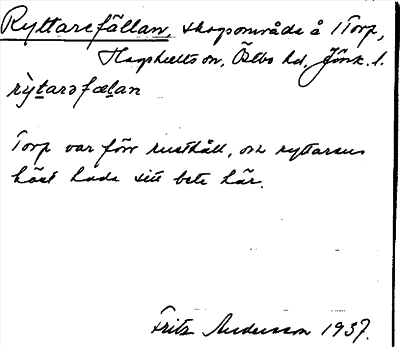 Ryttarefällan, skogsområde å Torp,
Hagshults sn, Östbo hd. Jönk. l.
rỳtarəfæḷan
Torp var förr rusthåll, och ryttarens
häst hade sitt bete här.
Fritz Andersson 1937.